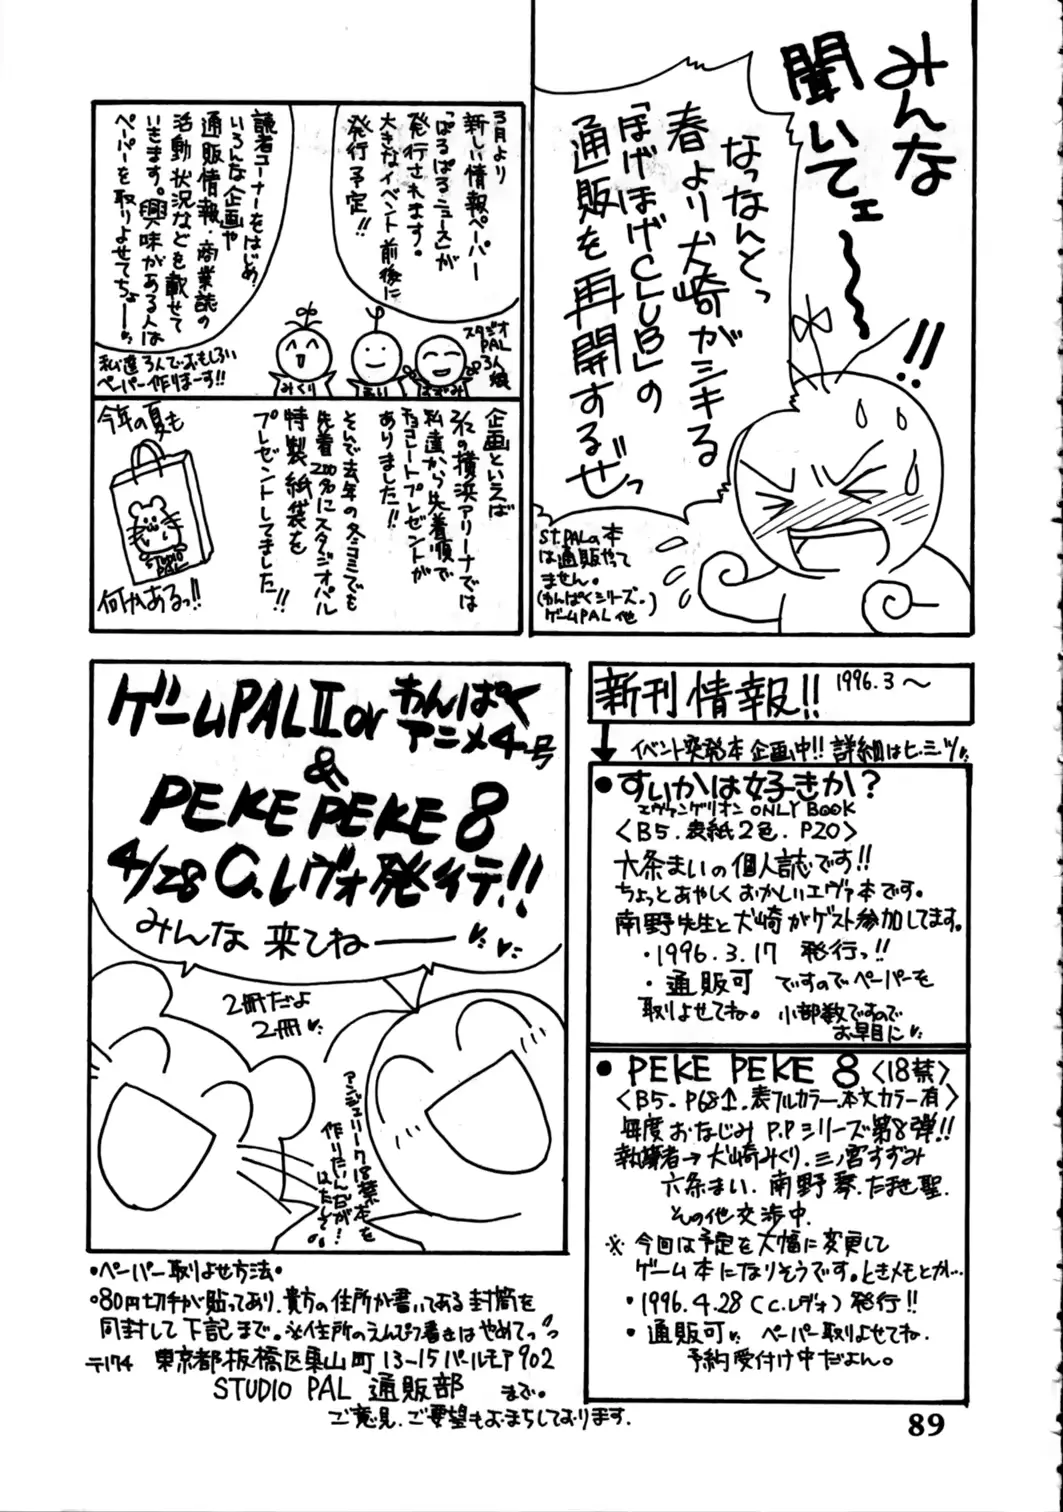 みんな
聞いてェ〜〜!!
なっなんとっ
春より犬崎がシキる
「ほげほげCLUB」の
通販を再開するぜっ
ST.PALの本
は通販やって
ません。
(わんぱくシリーズ。)
ゲームPAL他
3月より
新しい情報ペーパー
「ぱるぱるニュース」が
発行されます。
大きなイベント前後に
発行予定!!
読者コーナーをはじめ、
いろんな企画や
通販情報・商業誌の
活動状況などを載せて
いきます。興味がある人は
ペーパーを取りよせてちょーー
スタジオ
PAL
3人娘
みくり
私達3人でおもしろい
ペーパー作りまーす!!
企画といえば
3/2の横浜アリーナでは
私達から先着順で
チョコレートプレゼントが
ありました!!
そんで去年の冬コミでも
先着200名にスタジオパル
特製紙袋を
プレゼントしてました!!
今年の夏も
STUDIO
PAL
何かあるっ!!
ゲームPALⅡor わんぱく
アニメ4号
&
PEKE PEKE 8
4/28 C.レヴォ発行デ!!
みんな来てねーーー
2冊だよ
2冊
アンジェリーク18禁本を
作りたいんだが!
はたして。
新刊情報!! 1996.3〜
イベント突発本 企画中!! 詳細はヒ・ミツ
●すいかは好きか?
エヴァンゲリオン ONLY BOOK
〈B5.表紙2色.P20〉
六条まいの個人誌です!!
ちょっとあやしくおかしいエヴァ本です。
南野先生と犬崎がゲスト参加してます。
・1996.3.17 発行っ!!
・通販可 ですのでペーパーを
取りよせてね。小部数ですので
お早目に
●PEKE PEKE 8〈18禁〉
〈B5.P68↑.表フルカラー.本文カラー有〉
毎度おなじみP.Pシリーズ第8弾!!
執筆者→犬崎みくり.三ノ宮すずみ
六条まい.南野琴.たませ聖.
その他交渉中.
※今回は予定を大幅に変更して
ゲーム本になりそうです。ときメモとか…
・1996.4.28(C.レヴォ)発行!!
・通販可 ペーパー取りよせてね.
予約受付け中だよん。
・ペーパー取りよせ方法・
・80円切手が貼ってあり、貴方の住所が書いてある封筒を
同封して下記まで。※住所のえんぴつ書きはやめてっ
〒174 東京都板橋区東山町13-15パールモア902
STUDIO PAL 通販部 まで。
ご意見.ご要望もおまちしております.
89